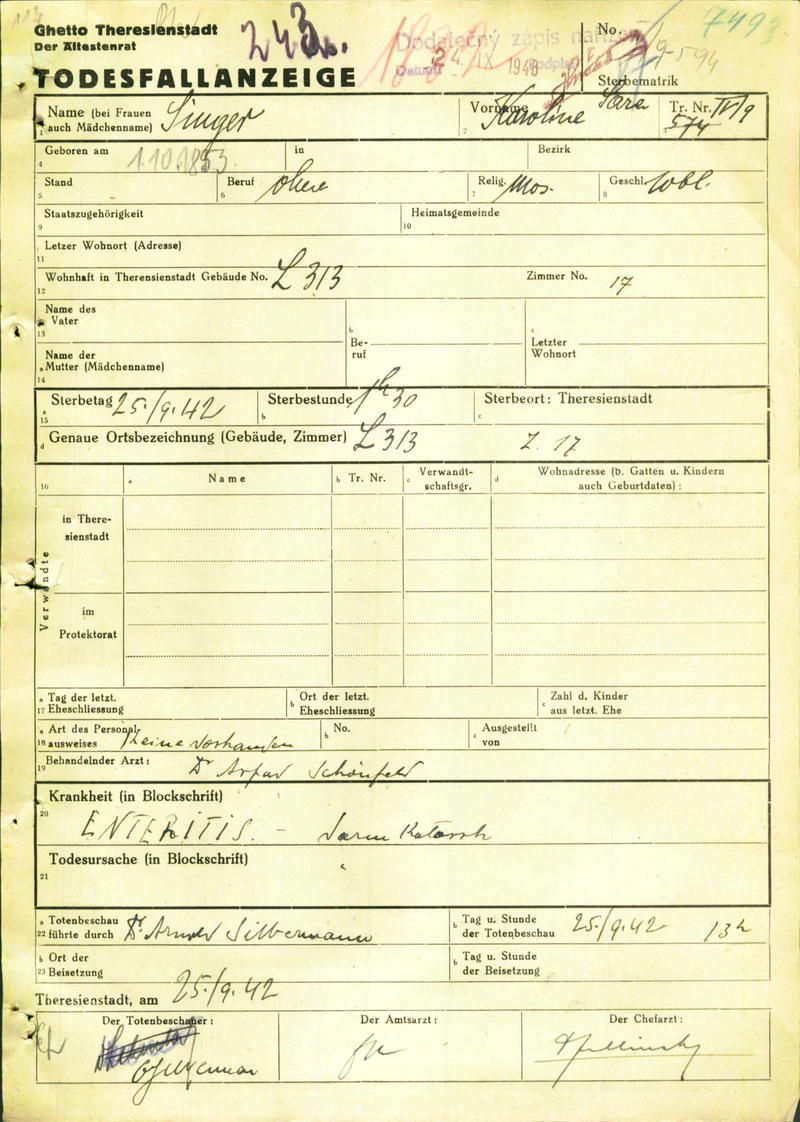 Ghetto Theresienstadt
Der Ältestenrat
TODESFALLANZEIGE
243
1882
Dodatečný zápis nařízen
Datum 24. IX 1948 Podpis
No.
7493
Sterbematrik
1 Name (bei Frauen auch Mädchenname) Singer
2 Vorname Karoline Sara
3 Tr. Nr. IV/9
574
4 Geboren am 1.10.1853
in
Bezirk
5 Stand
6 Beruf ohne
7 Relig. Mos.
8 Geschl. wbl.
9 Staatszugehörigkeit
10 Heimatsgemeinde
11 Letzer Wohnort (Adresse)
12 Wohnhaft in Therensienstadt Gebäude No. L 313
Zimmer No. 17
13 Name des Vater
14 a Name der Mutter (Mädchenname)
b Be-ruf
c Letzter Wohnort
15 a Sterbetag 25./9.42
b Sterbestunde 1h 30
c Sterbeort: Theresienstadt
d Genaue Ortsbezeichnung (Gebäude, Zimmer) L 313 Z. 17
16
a Name
b Tr. Nr.
c Verwandt-schaftsgr.
d Wohnadresse (b. Gatten u. Kindern auch Geburtdaten) :
Verwandte
in There-sienstadt
im Protektorat
17 a Tag der letzt. Eheschliessung
b Ort der letzt. Eheschliessung
c Zahl d. Kinder aus letzt. Ehe
18 a Art des Personal-ausweises Keine vorhanden
b No.
c Ausgestellt von
19 Behandelnder Arzt: Dr Arpad Schönfeld
Krankheit (in Blockschrift)
20 ENTERITIS. – Darm Katarrh
Todesursache (in Blockschrift)
21
22 a Totenbeschau führte durch Dr. Arnold Silbermann
b Tag u. Stunde der Totenbeschau 25/9.42 13h
23 b Ort der Beisetzung
b Tag u. Stunde der Beisetzung
Theresienstadt, am 25./9.42
Der Totenbeschauer:
Der Amtsarzt:
Der Chefarzt: